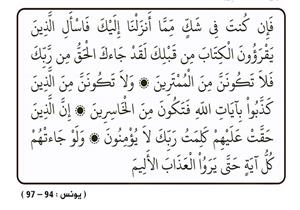 فَإِن كُنتَ فِي شَكٍّ مِّمَّا أَنزَلْنَا إِلَيْكَ فَاسْأَلِ الَّذِينَ
يَقْرَؤُونَ الْكِتَابَ مِن قَبْلِكَ لَقَدْ جَاءكَ الْحَقُّ مِن رَّبِّكَ
فَلاَ تَكُونَنَّ مِنَ الْمُمْتَرِينَ ۝ وَلاَ تَكُونَنَّ مِنَ الَّذِينَ
كَذَّبُواْ بِآيَاتِ اللّهِ فَتَكُونَ مِنَ الْخَاسِرِينَ ۝ إِنَّ الَّذِينَ
حَقَّتْ عَلَيْهِمْ كَلِمَتُ رَبِّكَ لاَ يُؤْمِنُونَ ۝ وَلَوْ جَاءتْهُمْ
كُلُّ آيَةٍ حَتَّى يَرَوُاْ الْعَذَابَ الأَلِيمَ
( يونس : 94 – 97 )